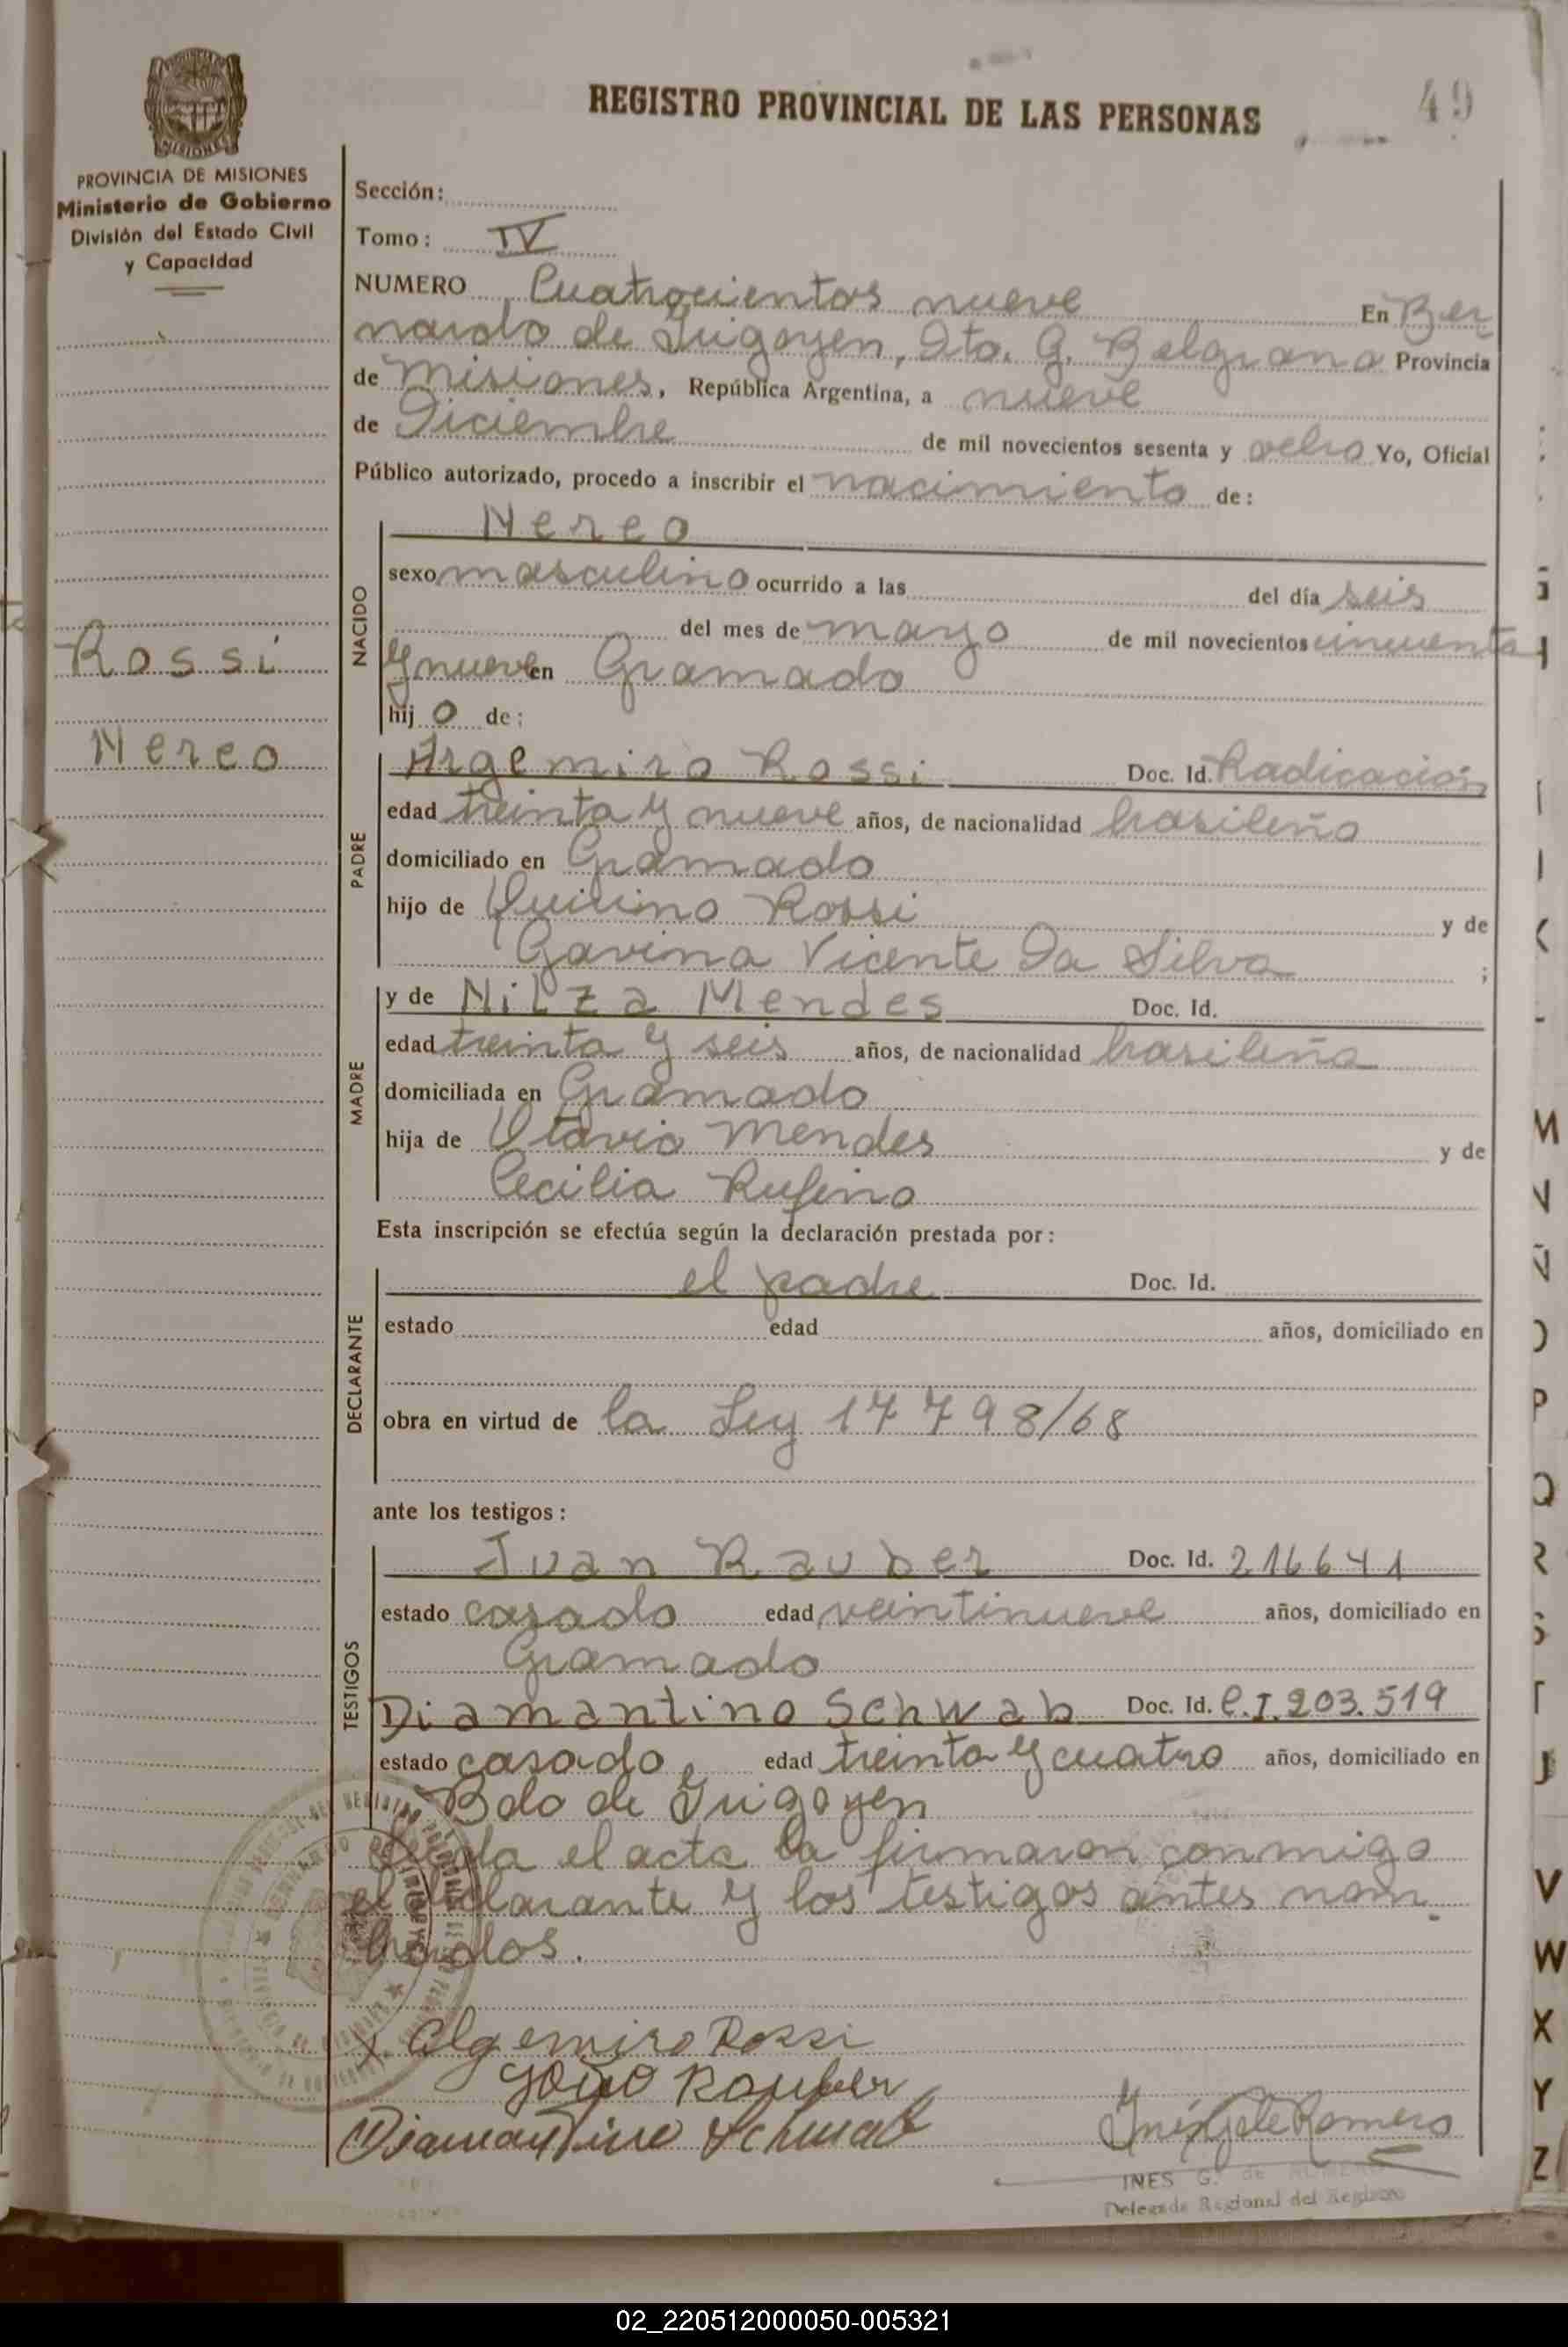 REGISTRO PROVINCIAL DE LAS PERSONAS
49
MISIONES
PROVINCIA DE MISIONES
Ministerio de Gobierno
División del Estado Civil
y Capacidad
Rossi
Nereo
Sección:
Tomo: IV
NUMERO Cuatrocientos nueve En Ber
nardo de Irigoyen, Dto. G. Belgrano Provincia
de Misiones, República Argentina, a nueve
de Diciembre de mil novecientos sesenta y ocho Yo, Oficial
Público autorizado, procedo a inscribir el nacimiento de:
NACIDO
Nereo
sexo masculino ocurrido a las del día seis
del mes de marzo de mil novecientos cincuenta
y nueve en Gramado
hij o de:
PADRE
Argemiro Rossi Doc. Id. Radicación
edad treinta y nueve años, de nacionalidad brasileño
domiciliado en Gramado
hijo de Quirino Rossi y de
Gavina Vicente Da Silva ;
MADRE
y de Nilza Mendes Doc. Id.
edad treinta y seis años, de nacionalidad brasileña
domiciliada en Gramado
hija de Otavio Mendes y de
Cecilia Rufino
Esta inscripción se efectúa según la declaración prestada por:
DECLARANTE
el padre Doc. Id.
estado edad años, domiciliado en
obra en virtud de la Ley 17798/68
ante los testigos:
TESTIGOS
Juan Rauber Doc. Id. 216641
estado casado edad veintinueve años, domiciliado en
Gramado
Diamantino Schwab Doc. Id. C.I. 203.519
estado casado edad treinta y cuatro años, domiciliado en
Bdo de Irigoyen
Leída el acta la firmaron conmigo
el declarante y los testigos antes nom
brados.
x. Algemiro Rossi
João Rauber
Diamantino Schwab
Inés G de Romero
INES G. de ROMERO
Delegada Regional del Registro
G
H
I
J
K
L
M
N
Ñ
O
P
Q
R
S
T
U
V
W
X
Y
Z
02_220512000050-005321